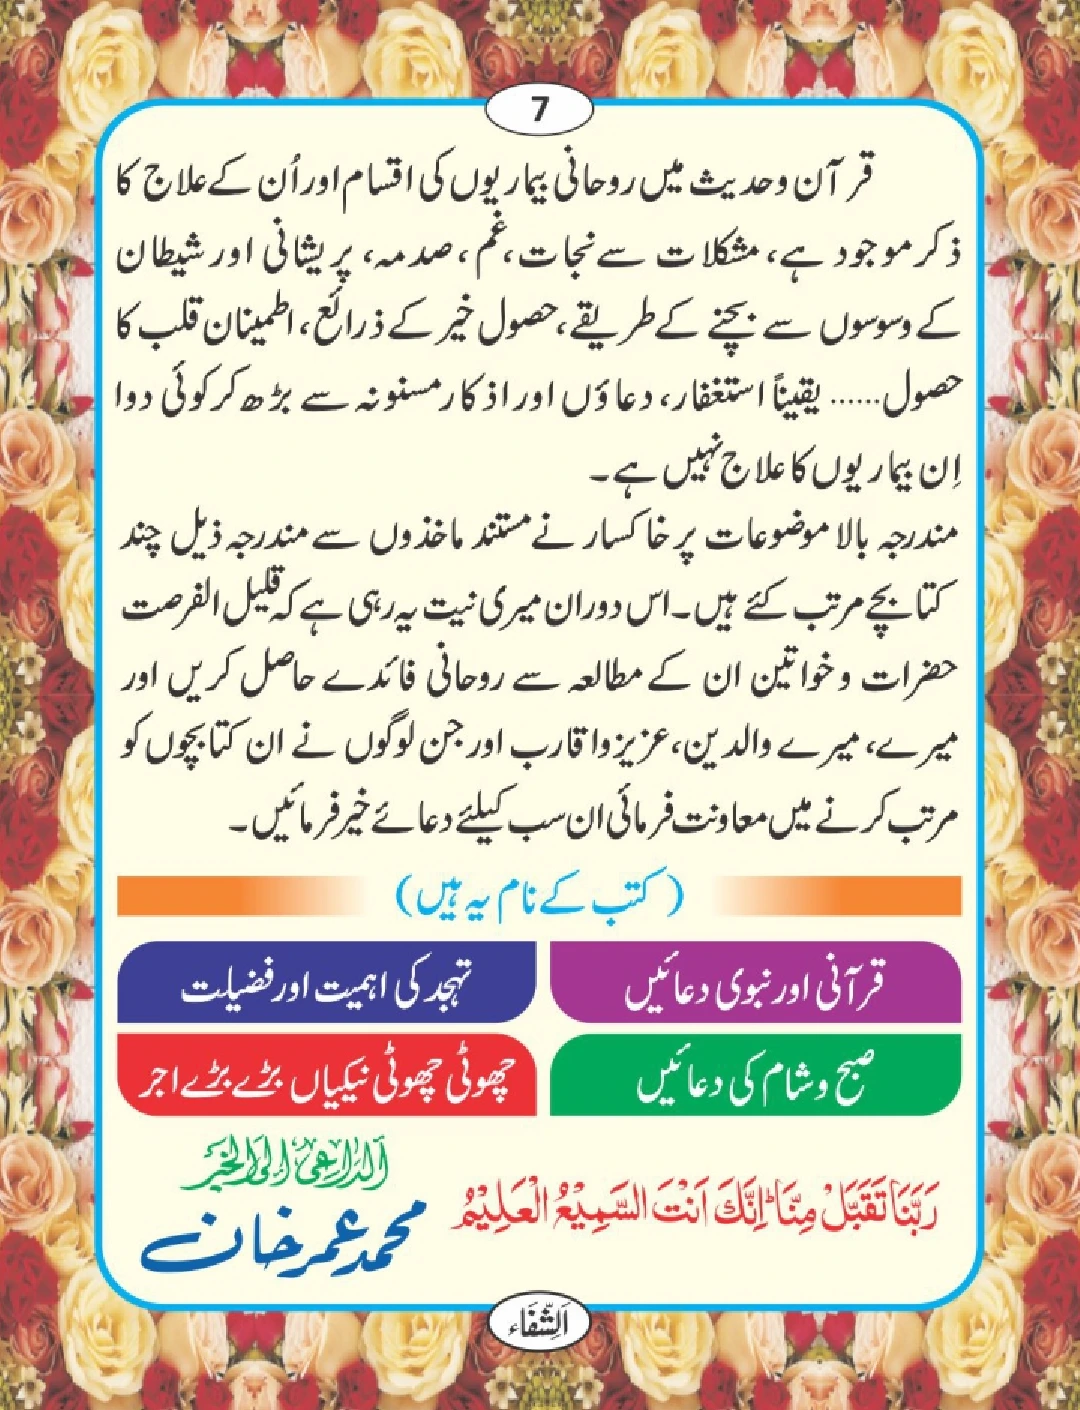 7
قرآن وحدیث میں روحانی بیماریوں کی اقسام اور اُن کے علاج کا
ذکر موجود ہے، مشکلات سے نجات، غم، صدمہ، پریشانی اور شیطان
کے وسوسوں سے بچنے کے طریقے، حصول خیر کے ذرائع، اطمینان قلب کا
حصول...... یقیناً استغفار، دعاؤں اور اذکار مسنونہ سے بڑھ کر کوئی دوا
اِن بیماریوں کا علاج نہیں ہے۔
مندرجہ بالا موضوعات پر خاکسار نے مستند ماخذوں سے مندرجہ ذیل چند
کتابچے مرتب کئے ہیں۔ اس دوران میری نیت یہ رہی ہے کہ قلیل الفرصت
حضرات و خواتین ان کے مطالعہ سے روحانی فائدے حاصل کریں اور
میرے، میرے والدین، عزیز واقارب اور جن لوگوں نے ان کتابچوں کو
مرتب کرنے میں معاونت فرمائی ان سب کیلئے دعائے خیر فرمائیں۔
(کتب کے نام یہ ہیں)
قرآنی اور نبوی دعائیں
تہجد کی اہمیت اور فضیلت
صبح و شام کی دعائیں
چھوٹی چھوٹی نیکیاں بڑے بڑے اجر
رَبَّنَا تَقَبَّلْ مِنَّا ؕ اِنَّكَ اَنْتَ السَّمِيْعُ الْعَلِيْمُ
الداعی الی الخیر
محمد عمر خان
اَلشِّفَاء